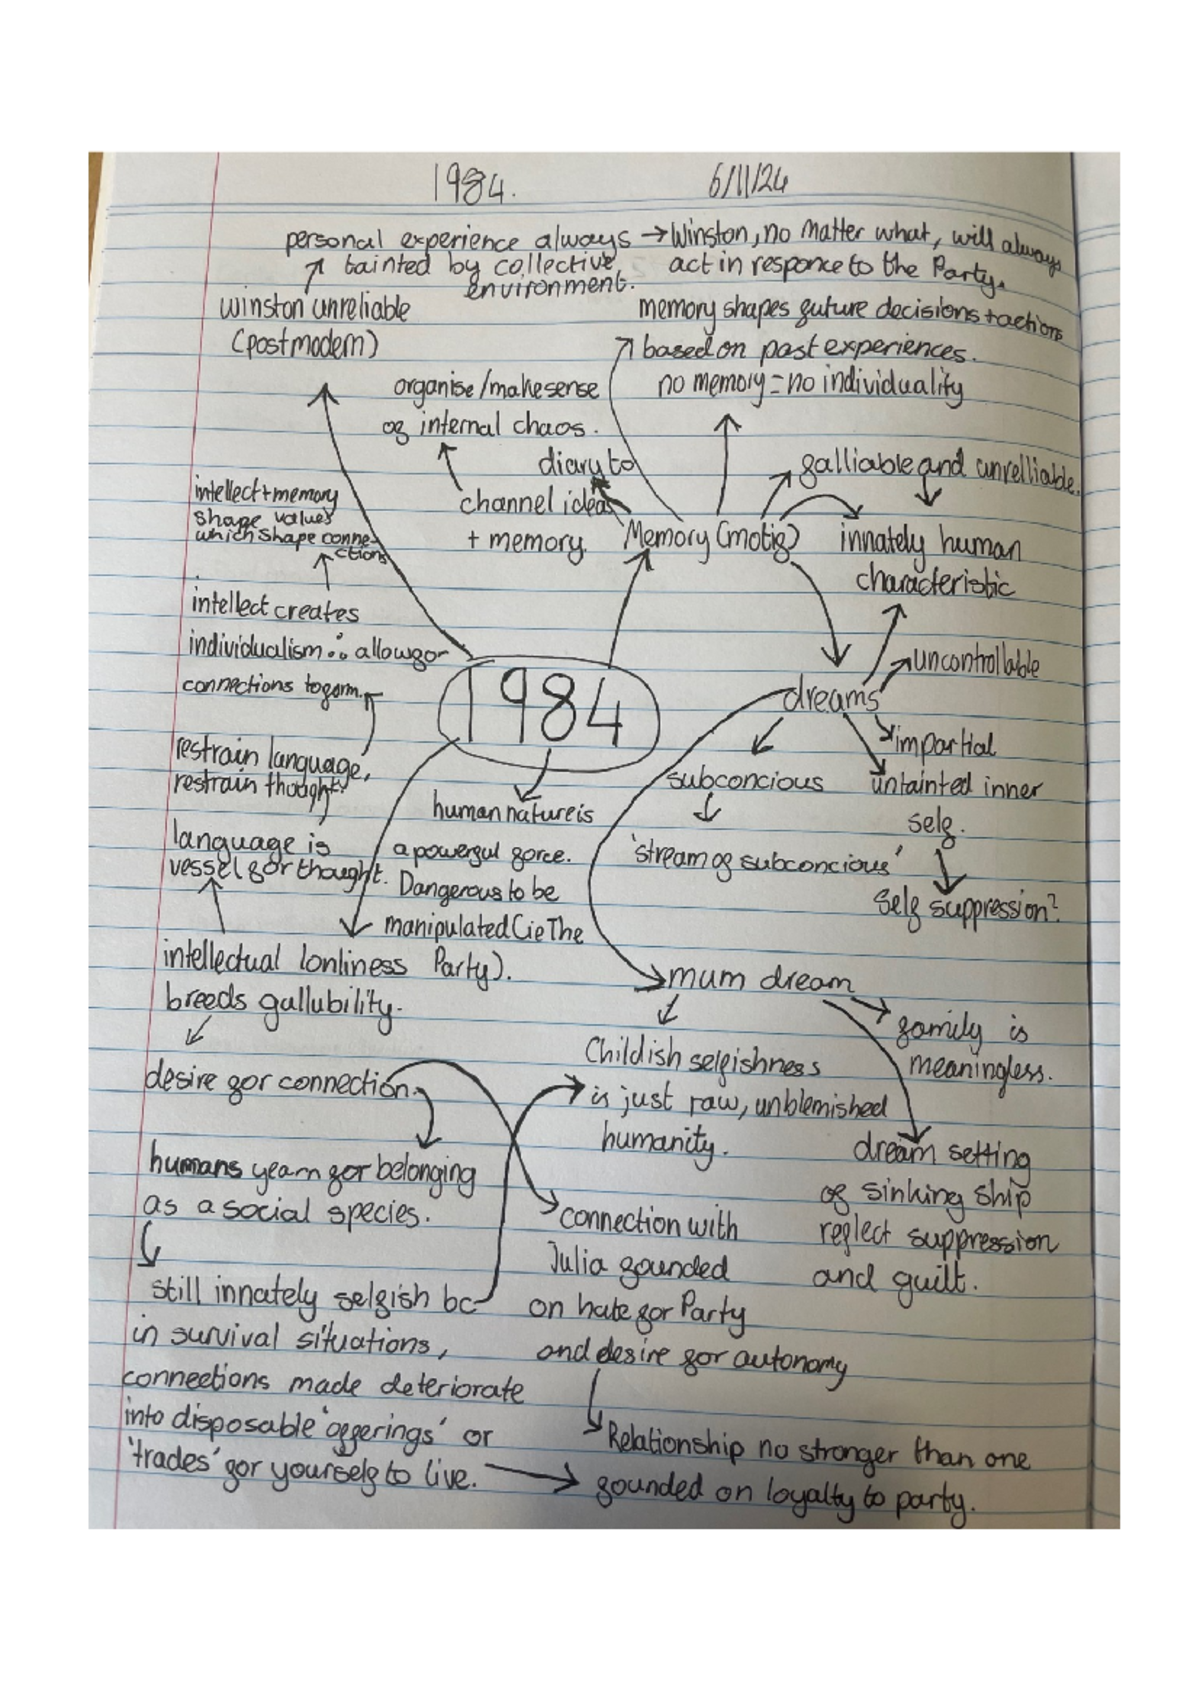 1984.
6/11/24
personal experience always → Winston, no matter what, will always
tainted by collective
environment.
act in responce to the Party.
winston unreliable
(postmodern)
memory shapes future decisions + actions
based on past experiences.
no memory = no individuality
organise/make sense
of internal chaos.
diary to
channel ideas
+ memory.
galliable and unrelliable.
Memory (motif)
innately human
characteristic
intellect + memory
shape values
which shape conne-
ctions
intellect creates
individualism ∴ allow for
connections to form.
restrain language,
restrain thought
language is
vessel for thought.
1984
dreams
uncontrollable
impartial
untainted inner
self.
self suppression?
subconcious
'stream of subconcious'
human nature is
a powerful force.
Dangerous to be
manipulated (ie The
Party).
intellectual lonliness
breeds gallubility.
desire for connection.
humans yearn for belonging
as a social species.
still innately selfish bc
in survival situations,
connections made deteriorate
into disposable 'offerings' or
'trades' for yourself to live.
mum dream
family is
meaningless.
Childish selfishness
is just raw, unblemished
humanity.
dream setting
of sinking ship
reflect suppression
and guilt.
connection with
Julia founded
on hate for Party
and desire for autonomy
Relationship no stronger than one
founded on loyalty to party.